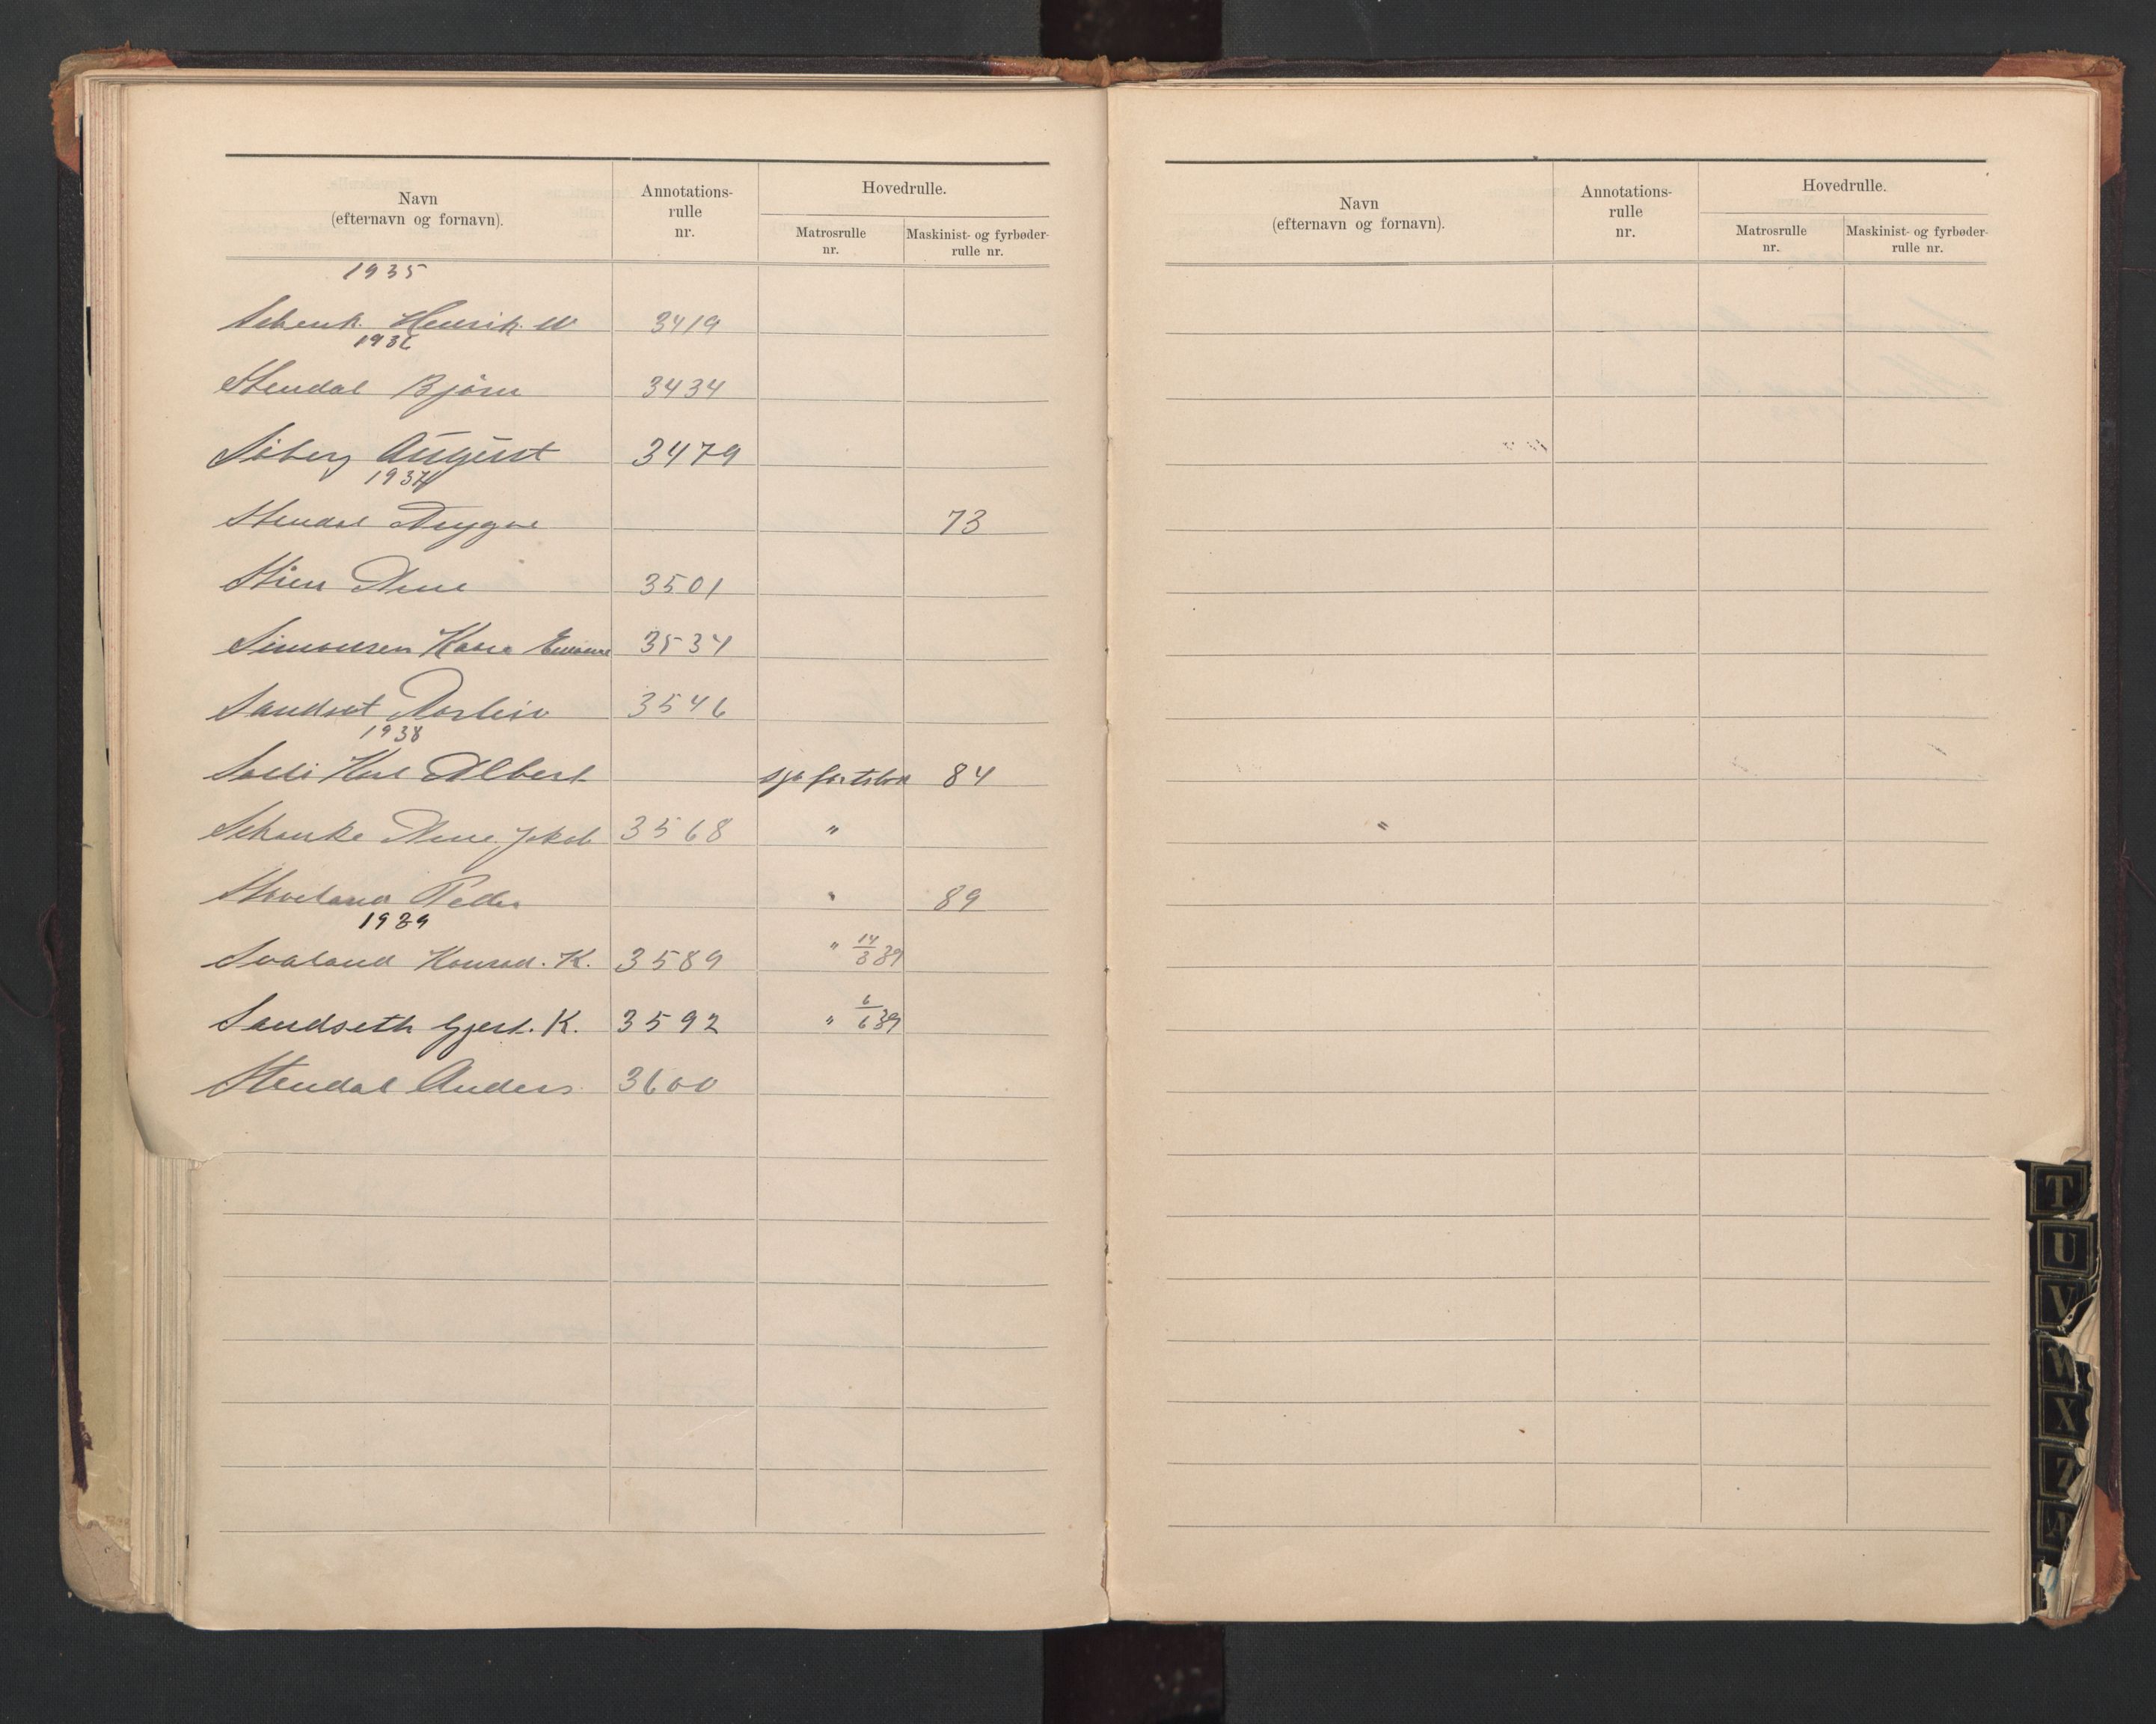 Navn (efternavn og fornavn). Annotations-rulle nr. Hovedrulle. Matrosrulle nr. Maskinist- og fyrbøder-rulle nr.
1935
Schenk. Henrik. W 3419
1936
Stendal Bjørn 3434
Søberg August 3479
1937
Stendal Trygve 73
Stien Arne 3501
Simonsen Kaare 3534
Sandset Torleiv 3546
1938
Karl Albert sjøfartsbok 84
Schanke Arne. Jakob 3568 "
Peder " 89
1939
Svaland Konrad. K. 3589 " 14/3 39
Sandseth Gjert. K. 3592 " 6/6 39
Stendal Anders 3600
Navn (efternavn og fornavn). Annotations-rulle nr. Hovedrulle. Matrosrulle nr. Maskinist- og fyrbøder-rulle nr.
T
U
V
W
X
Z